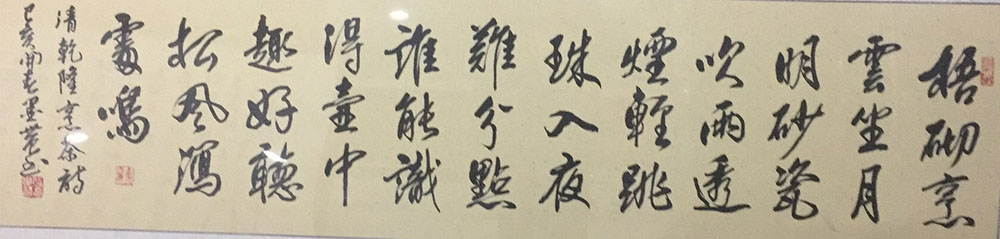 梧砌烹
雲坐月
明砂瓷
吹雨透
煙輕跳
珠入夜
難分點
誰能識
得壺中
趣好聽
松風瀉
處鳴
清乾隆烹茶詩
己亥開春墨